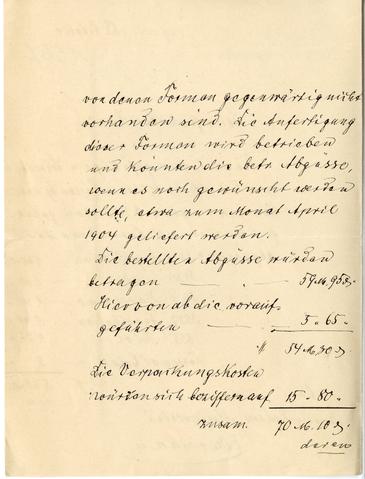 von denen Formen gegenwärtig nicht
vorhanden sind. Die Anfertigung
dieser Formen wird betrieben
und könnten die betr. Abgüsse,
wenn es noch gewünscht werden
sollte, etwa zum Monat April
1904 geliefert werden.
Die bestellten Abgüsse würden
betragen — — 59 M. 95 ₰.
Hiervon ab die vorauf-
geführten — — 5 " 65 "
" 54 M. 30 ₰.
Die Verpackungskosten
würden sich beziffern auf 15 " 80 "
zusam. 70 M. 10 ₰.
deren